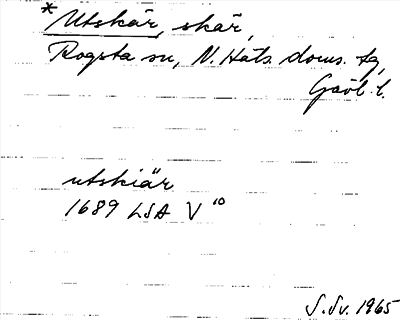 * Utskär, skär,
Rogsta sn, N. Häls. doms. tg,
Gävl. l.
utskiär
1689 LSA V 10
S.Sv. 1965